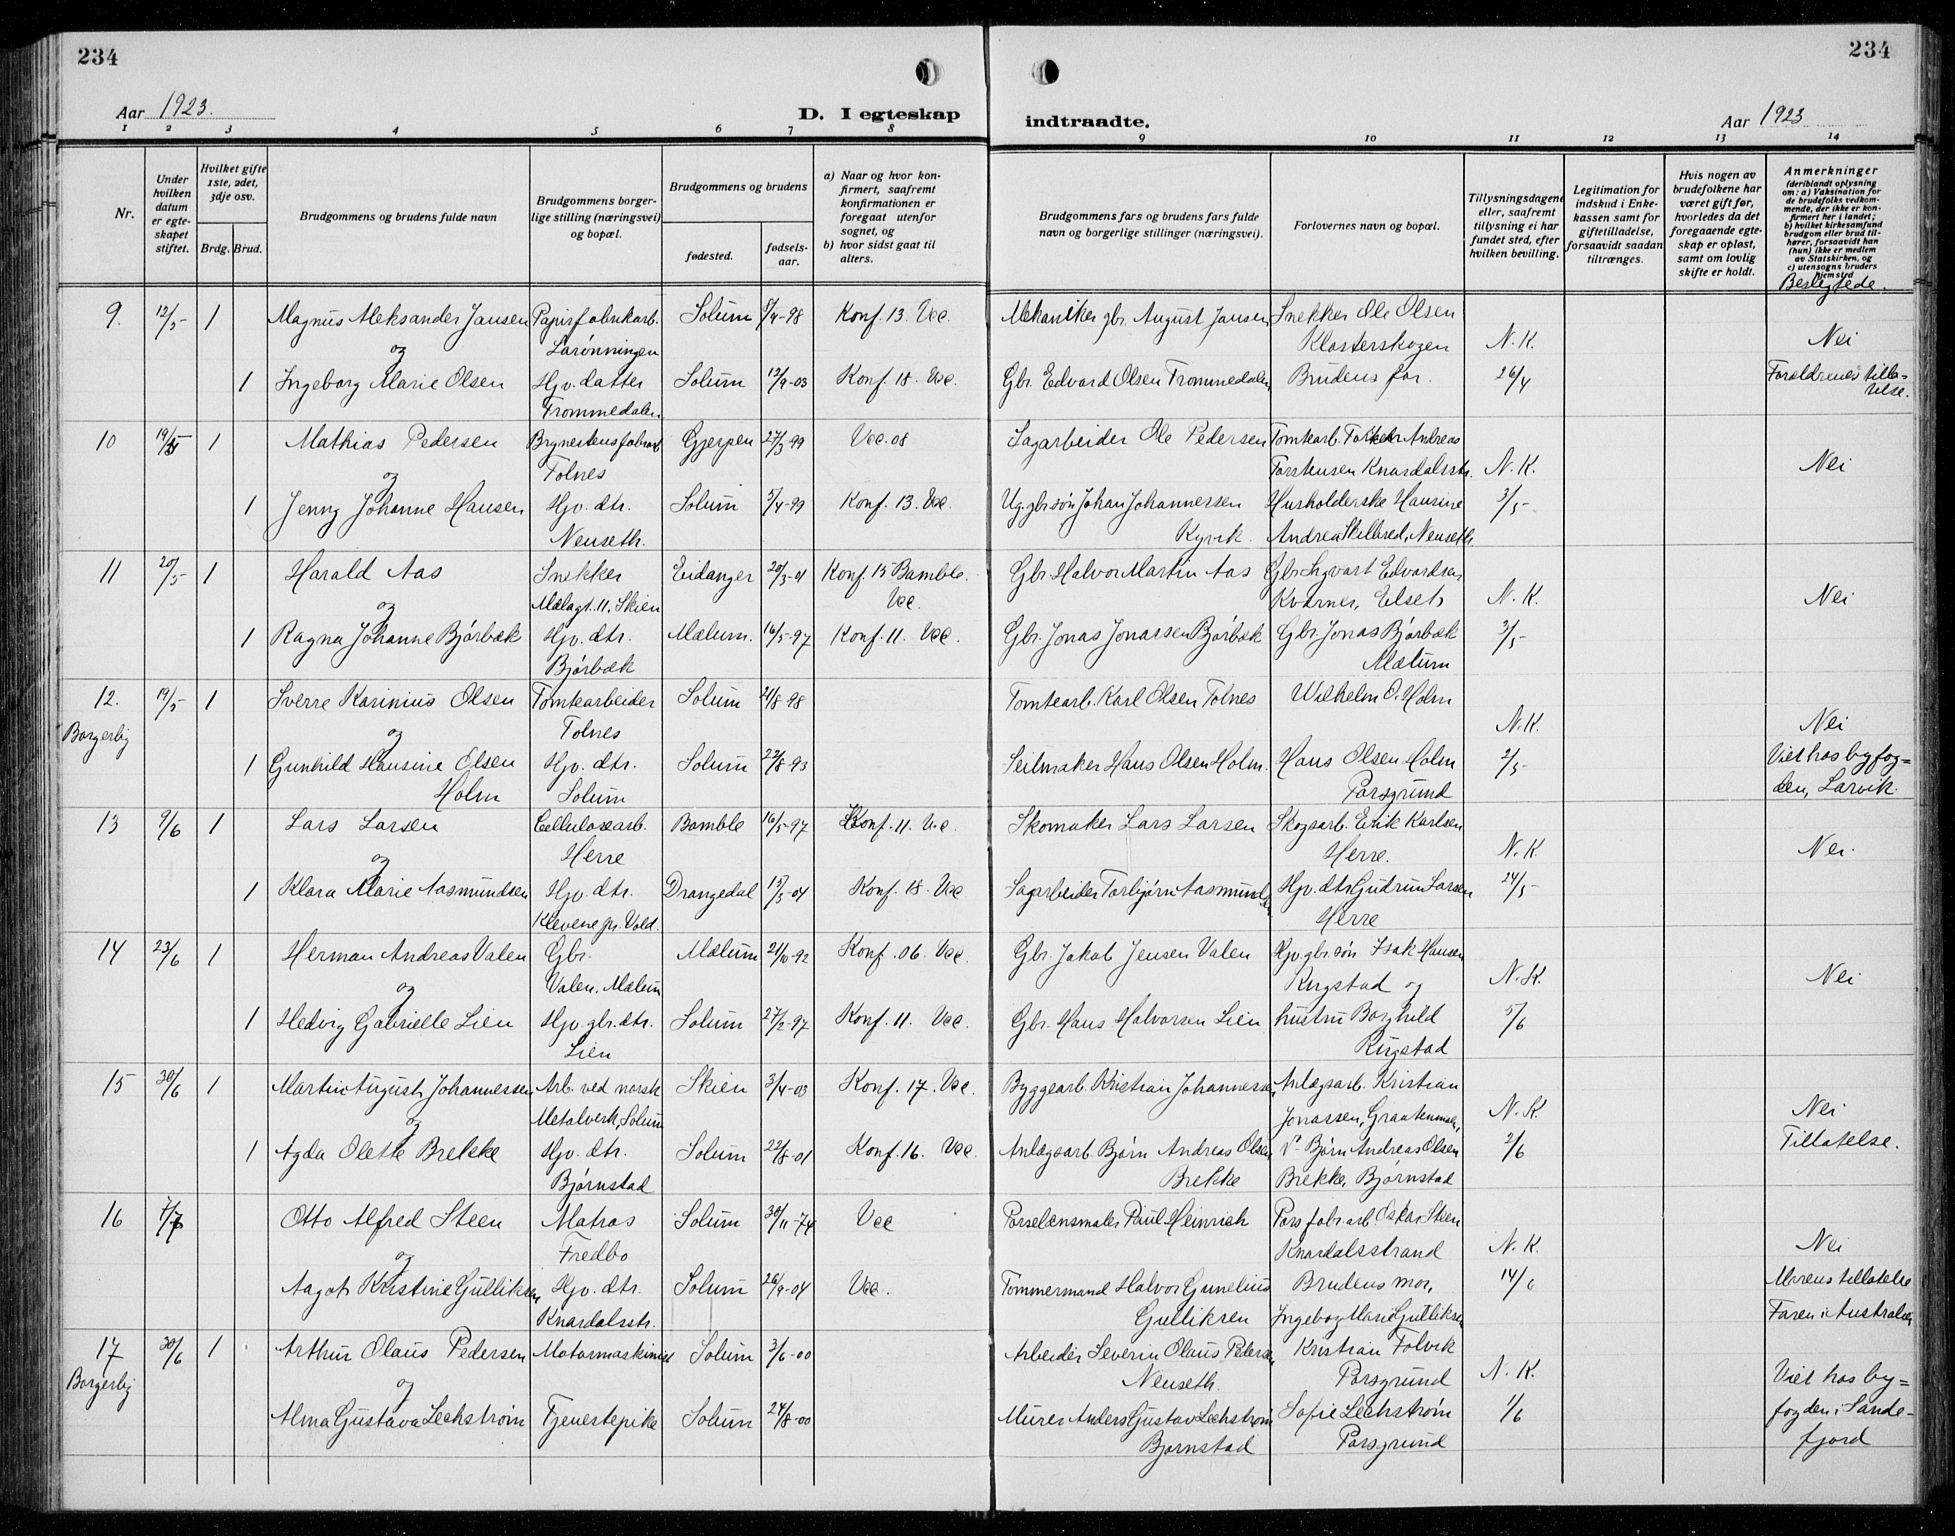 234
Aar 1923.
D. I egteskap
1 2 3 4 5 6 7 8
Nr.
Under hvilken datum er egteskapet stiftet.
Hvilket gifte 1ste, 2det, 3dje osv.
Brdg. Brud.
Brudgommens og brudens fulde navn
Brudgommens borgerlige stilling (næringsvei) og bopæl.
Brudgommens og brudens
fødested.
fødselsaar.
a) Naar og hvor konfirmert, saafremt konfirmationen er foregaat utenfor sognet, og
b) hvor sidst gaat til alters.
9. 12/5- 1 Magnus Aleksander Jansen Papirfabrikarb. Solum 8/4-98 Konf. 13. Vec.
og Larønningen
1 Ingeborg Marie Olsen Hjv. datter Solum 12/9-03 Konf. 18. Vec.
Trommedalen
10 19/5 1 Mathias Pedersen Brynestensfabrarb Gjerpen 27/3 99 Vec. 08
og Tolnes
1 Jenny Johanne Hansen Hjv. dtr. Solum 5/4-99 Konf. 13. Vec.
Nenseth.
11 20/5- 1 Harald Aas Snekker Eidanger 20/3-01 Konf. 15 Bamble.
og Mælagt. 11, Skien Vec.
1 Ragna Johanne Bjørbæk Hjv. dtr. Mælum. 16/5-97 Konf. 11. Vec.
Bjørbæk
12. 19/5 1 Sverre Karinius Olsen Tomtearbeider Solum 21/8 98
Borgerlig og Tolnes
1 Gunhild Hansine Olsen Hjv. dtr. Solum 22/8-93
Holm Solum
13 9/6 1 Lars Larsen Cellulosearb. Bamble 16/5-97 Konf. 11. Vec.
og Herre
1 Klara Marie Aasmundsen Hjv. dtr. Drangedal 15/3-04 Konf. 18. Vec
Klevene pr. Vold.
14 23/6 1 Herman Andreas Valen Gbr. Mælum 21/10-92 Konf. 06. Vec.
og Valen. Mælum
1 Hedvig Gabrielle Lien Hjv. gbr. dtr. Solum 27/2-97 Konf. 11. Vec.
Lien
15 30/6 1 Martin August Johannessen Arb. ved norsk Skien 3/4-03 Konf. 17. Vec.
og Metalverk, Solum
1 Agda Olette Brekke Hjv. dtr. Solum 22/8-01 Konf. 16. Vec.
Bjørnstad
16 7/7 Otto Alfred Steen Matros Solum 30/11-74 Vec
og Fredbo
Aagot Kristine Gulliksen Hjv. dtr. Solum 26/9-04 Vec.
Knardalsstr.
17 30/6 1 Arthur Olaus Pedersen Motormaskinist Solum 3/6-00
Borgerlig og
Alma Gustava Lechstrøm Tjenestepike Solum 24/8-00
234
indtraadte.
Aar 1923
9 10 11 12 13 14
Brudgommens fars og brudens fars fulde navn og borgerlige stillinger (næringsvei).
Forlovernes navn og bopæl.
Tillysningsdagene eller, saafremt tillysning ei har fundet sted, efter hvilken bevilling.
Legitimation for indskud i Enkekassen samt for giftetilladelse, forsaavidt saadan tiltrænges.
Hvis nogen av brudefolkene har været gift før, hvorledes da det foregaaende egteskap er opløst, samt om lovlig skifte er holdt.
Anmerkninger
(deriblandt oplysning om: a) Vaksination for de brudefolks vedkommende, der ikke er konfirmert her i landet; b) hvilket kirkesamfund brudgom eller brud tilhører, forsaavidt han (hun) ikke er medlem av Statskirken, og c) utensogns bruders hjemsted
Beslegtede.
Mekaniker gbr. August Jansen Snekker Ole Olsen
Klosterskogen N. K. Nei
Gbr. Edvard Olsen Trommedalen Brudens far. 26/4 Forældrenes tilladelse.
Sagarbeider Ole Pedersen Tomtearb. Torkel Andreas
Torstensen Knardalsstr. N. K. Nei
Ug. gbr. søn Johan Johannessen Husholderske Hansine 3/5-
Kyvik. Andrea Skilbred, Nenseth.
Gbr. Halvor Martin Aas Gbr. Sigvart Edvardsen
Kværner, Elset N. K. Nei
Gbr. Jonas Jonassen Bjørbæk Gbr. Jonas Bjørbæk 3/5-
Mælum
Tomtearb. Karl Olsen Tolnes Wilhelm O. Holm
N. K. Nei
Seilmaker Hans Olsen Holm. Hans Olsen Holm 2/5- Viet hos byfog=
Porsgrund den, Larvik.
Skomaker Lars Larsen Skogsarb. Erik Karlsen
Herre. N. K. Nei.
Sagarbeider Torbjørn Aasmundsen Hjv. dtr. Gudrun Larsen 24/5-
Herre
Gbr. Jakob Jensen Valen Hjv. gbr. søn Isak Hansen
Rugstad og N. K. Nei
Gbr. Hans Halvorsen Lien hustru Borghild 5/6
Rugstad
Byggearb. Kristian Johannessen Anlægsarb. Kristian
Jonassen, Graatenmoen, N. K. Nei
Anlægsarb. Bjørn Andreas Olsen Bjørn Andreas Olsen 2/6 Tillatelse.
Brekke Brekke, Bjørnstad
Porselænsmaler Paul Heinrich Porsfabr. arb. Oskar Steen
Knardalsstrand N. K. Nei
Tømmermand Halvor Gunelius Brudens mor, 14/6 Morens tillatelse
Gulliksen Ingeborg Marie Gulliksen Faren i Australien
Arbeider Severin Olaus Pedersen Kristian Folvik
Nenseth. Porsgrund N. K. Viet hos by=
Murer Anders Gustav Lechstrøm Sofie Lechstrøm 1/6 fogden i Sande-
Bjørnstad Porsgrund fjord